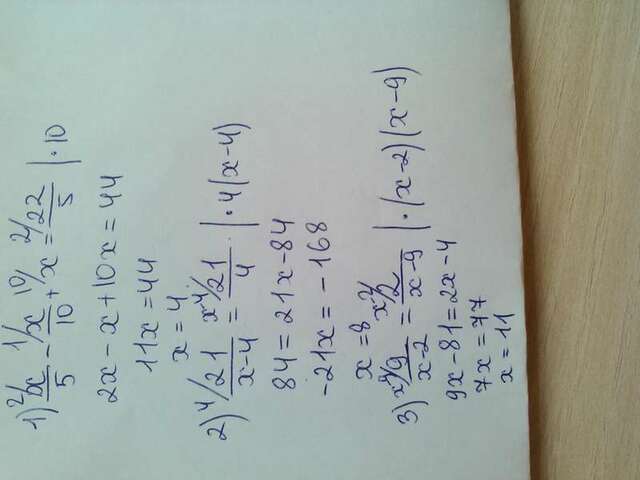 1) ²/x/5 - ¹/x/10 + ¹⁰/x = ²/22/5 | · 10
2x - x + 10x = 44
11x = 44
x = 4
2) ⁴/21/x-4 = ˣ⁻⁴/21/4 | · 4(x-4)
84 = 21x - 84
-21x = -168
x = 8
3) ˣ⁻⁹/9/x-2 = ˣ⁻²/2/x-9 | · (x-2)(x-9)
9x - 81 = 2x - 4
7x = 77
x = 11